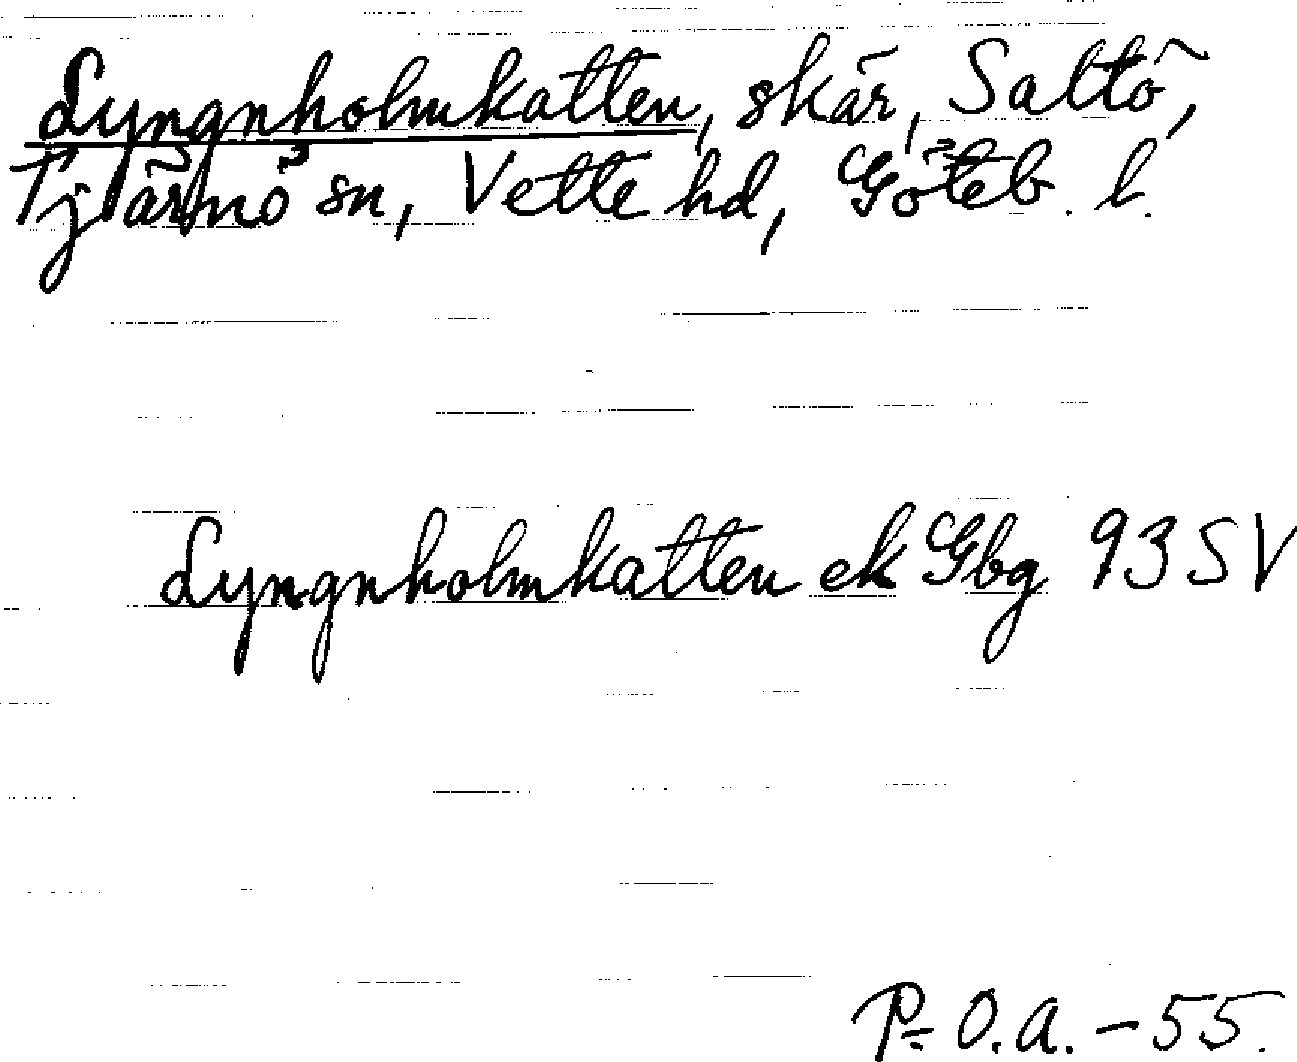 Lyngnholmkatten, skär, Saltö,
Tjärnö sn, Vette hd, Göteb. l.
Lyngnholmkatten ek Gbg 93 SV
P-O.a. - 55.